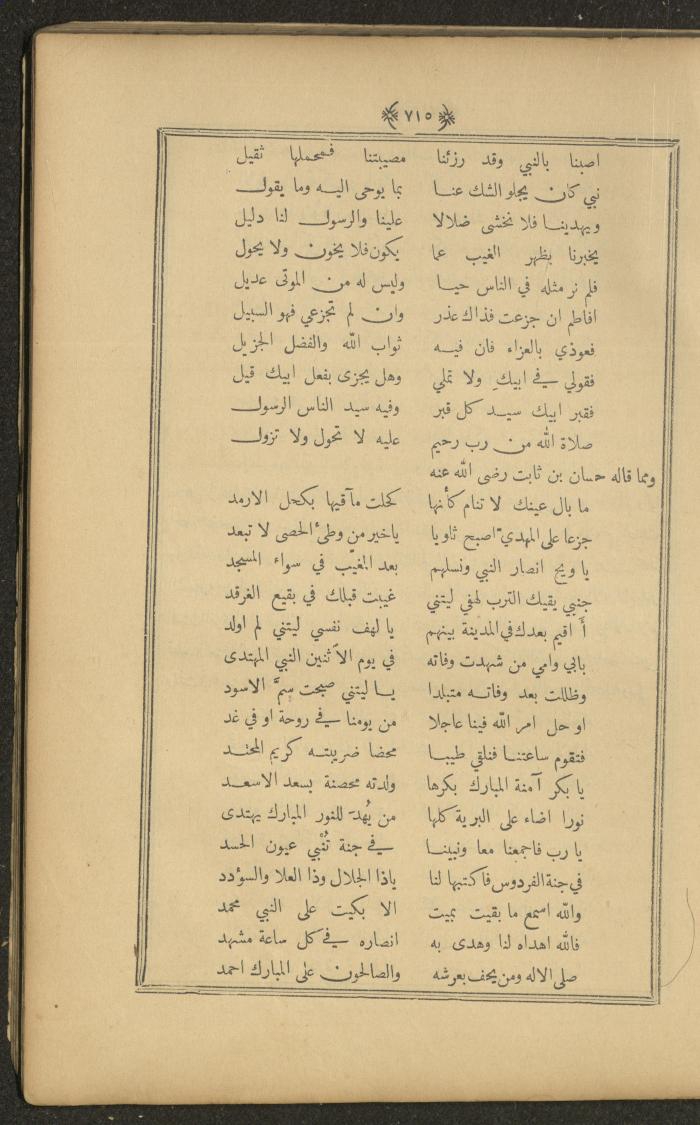 ٧١٥
اصبنا بالنبي وقد رزئنا مصيبتنا فمحملها ثقيل
نبي كان يجلو الشك عنا بما يوحى اليه وما يقول
ويهدينا فلا نخشى ضلالا علينا والرسول لنا دليل
يخبرنا بظهر الغيب عما يكون فلا يخون ولا يحول
فلم نر مثله في الناس حيا وليس له من الموتى عديل
افاطم ان جزعت فذاك عذر وان لم تجزعي فهو السبيل
فعوذي بالعزاء فان فيه ثواب الله والفضل الجزيل
فقولي في ابيكِ ولا تملي وهل يجزى بفعل ابيك قيل
فقبر ابيك سيد كل قبر وفيه سيد الناس الرسول
صلاة الله من رب رحيم عليه لا تحول ولا تزول
ومما قاله حسان بن ثابت رضى الله عنه
ما بال عينك لا تنام كأنها كحلت مآقيها بكحل الارمد
جزعا على المهديّ اصبح ثاويا ياخير من وطئ الحصى لا تبعد
يا ويح انصار النبي ونسلهم بعد المغيّب في سواء المسجد
جنبي يقيك الترب لهفي ليتني غيبت قبلك في بقيع الغرقد
أَ اقيم بعدك في المدينة بينهم يا لهف نفسي ليتني لم اولد
بابي وامي من شهدت وفاته في يوم الاثنين النبي المهتدى
وظللت بعد وفاته متبلدا يا ليتني صبحت سمَّ الاسود
او حل امر الله فينا عاجلا من يومنا في روحة او في غد
فتقوم ساعتنا فنلقي طيبا محضا ضريبته كريم المحتد
يا بكر آمنة المبارك بكرها ولدته محصنة بسعد الاسعد
نورا اضاء على البرية كلها من يُهدَ للنور المبارك يهتدى
يا رب فاجمعنا معا ونبينا في جنة تُنْبي عيون الحسد
في جنة الفردوس فاكتبها لنا ياذا الجلال وذا العلا والسؤدد
والله اسمع ما بقيت بميت الا بكيت على النبي محمد
فالله اهداه لنا وهدى به انصاره في كل ساعة مشهد
صلى الاله ومن يحف بعرشه والصالحون على المبارك احمد